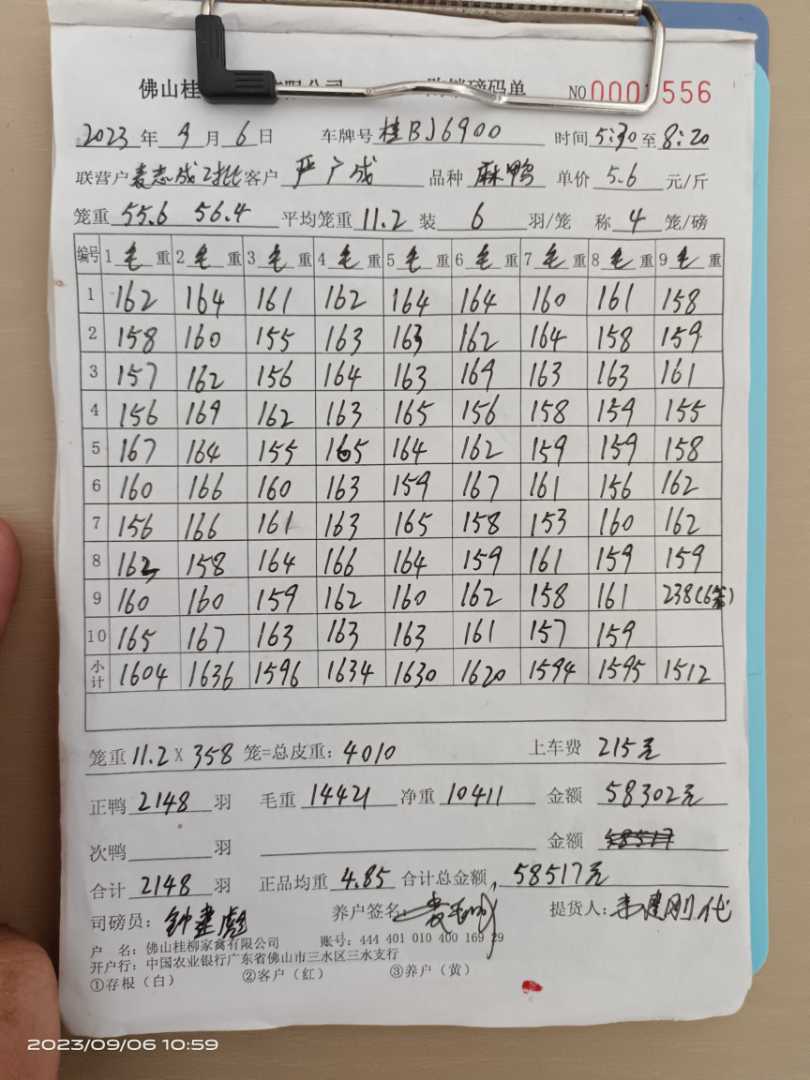 佛山桂 有限公司 购销磅码单 NO 000 556
2023年9月6日 车牌号 桂BJ6900 时间 5:30 至 8:20
联营户 麦志成2批 客户 严广成 品种 麻鸭 单价 5.6 元/斤
笼重 55.6 56.4 平均笼重 11.2 装 6 羽/笼 称 4 笼/磅
编号 1 毛 重 2 毛 重 3 毛 重 4 毛 重 5 毛 重 6 毛 重 7 毛 重 8 毛 重 9 毛 重
1 162 164 161 162 164 164 160 161 158
2 158 160 155 163 163 162 164 158 159
3 157 162 156 164 163 169 163 163 161
4 156 169 162 163 165 156 158 159 155
5 167 164 155 165 164 162 159 159 158
6 160 166 160 163 159 167 161 156 162
7 156 166 161 163 165 158 153 160 162
8 162 158 164 166 164 159 161 159 159
9 160 160 159 162 160 162 158 161 238(6笼)
10 165 167 163 163 163 161 157 159
小计 1604 1636 1596 1634 1630 1620 1594 1595 1512
笼重 11.2 X 358 笼=总皮重: 4010 上车费 215元
正鸭 2148 羽 毛重 14421 净重 10411 金额 58302元
次鸭 羽 金额 58517
合计 2148 羽 正品均重 4.85 合计总金额 58517元
司磅员: 钟建彪 养户签名 提货人: 刚代
户 名: 佛山桂柳家禽有限公司 账号: 444 401 010 400 169 29
开户行: 中国农业银行广东省佛山市三水区三水支行
①存根(白) ②客户(红) ③养户(黄)
2023/09/06 10:59